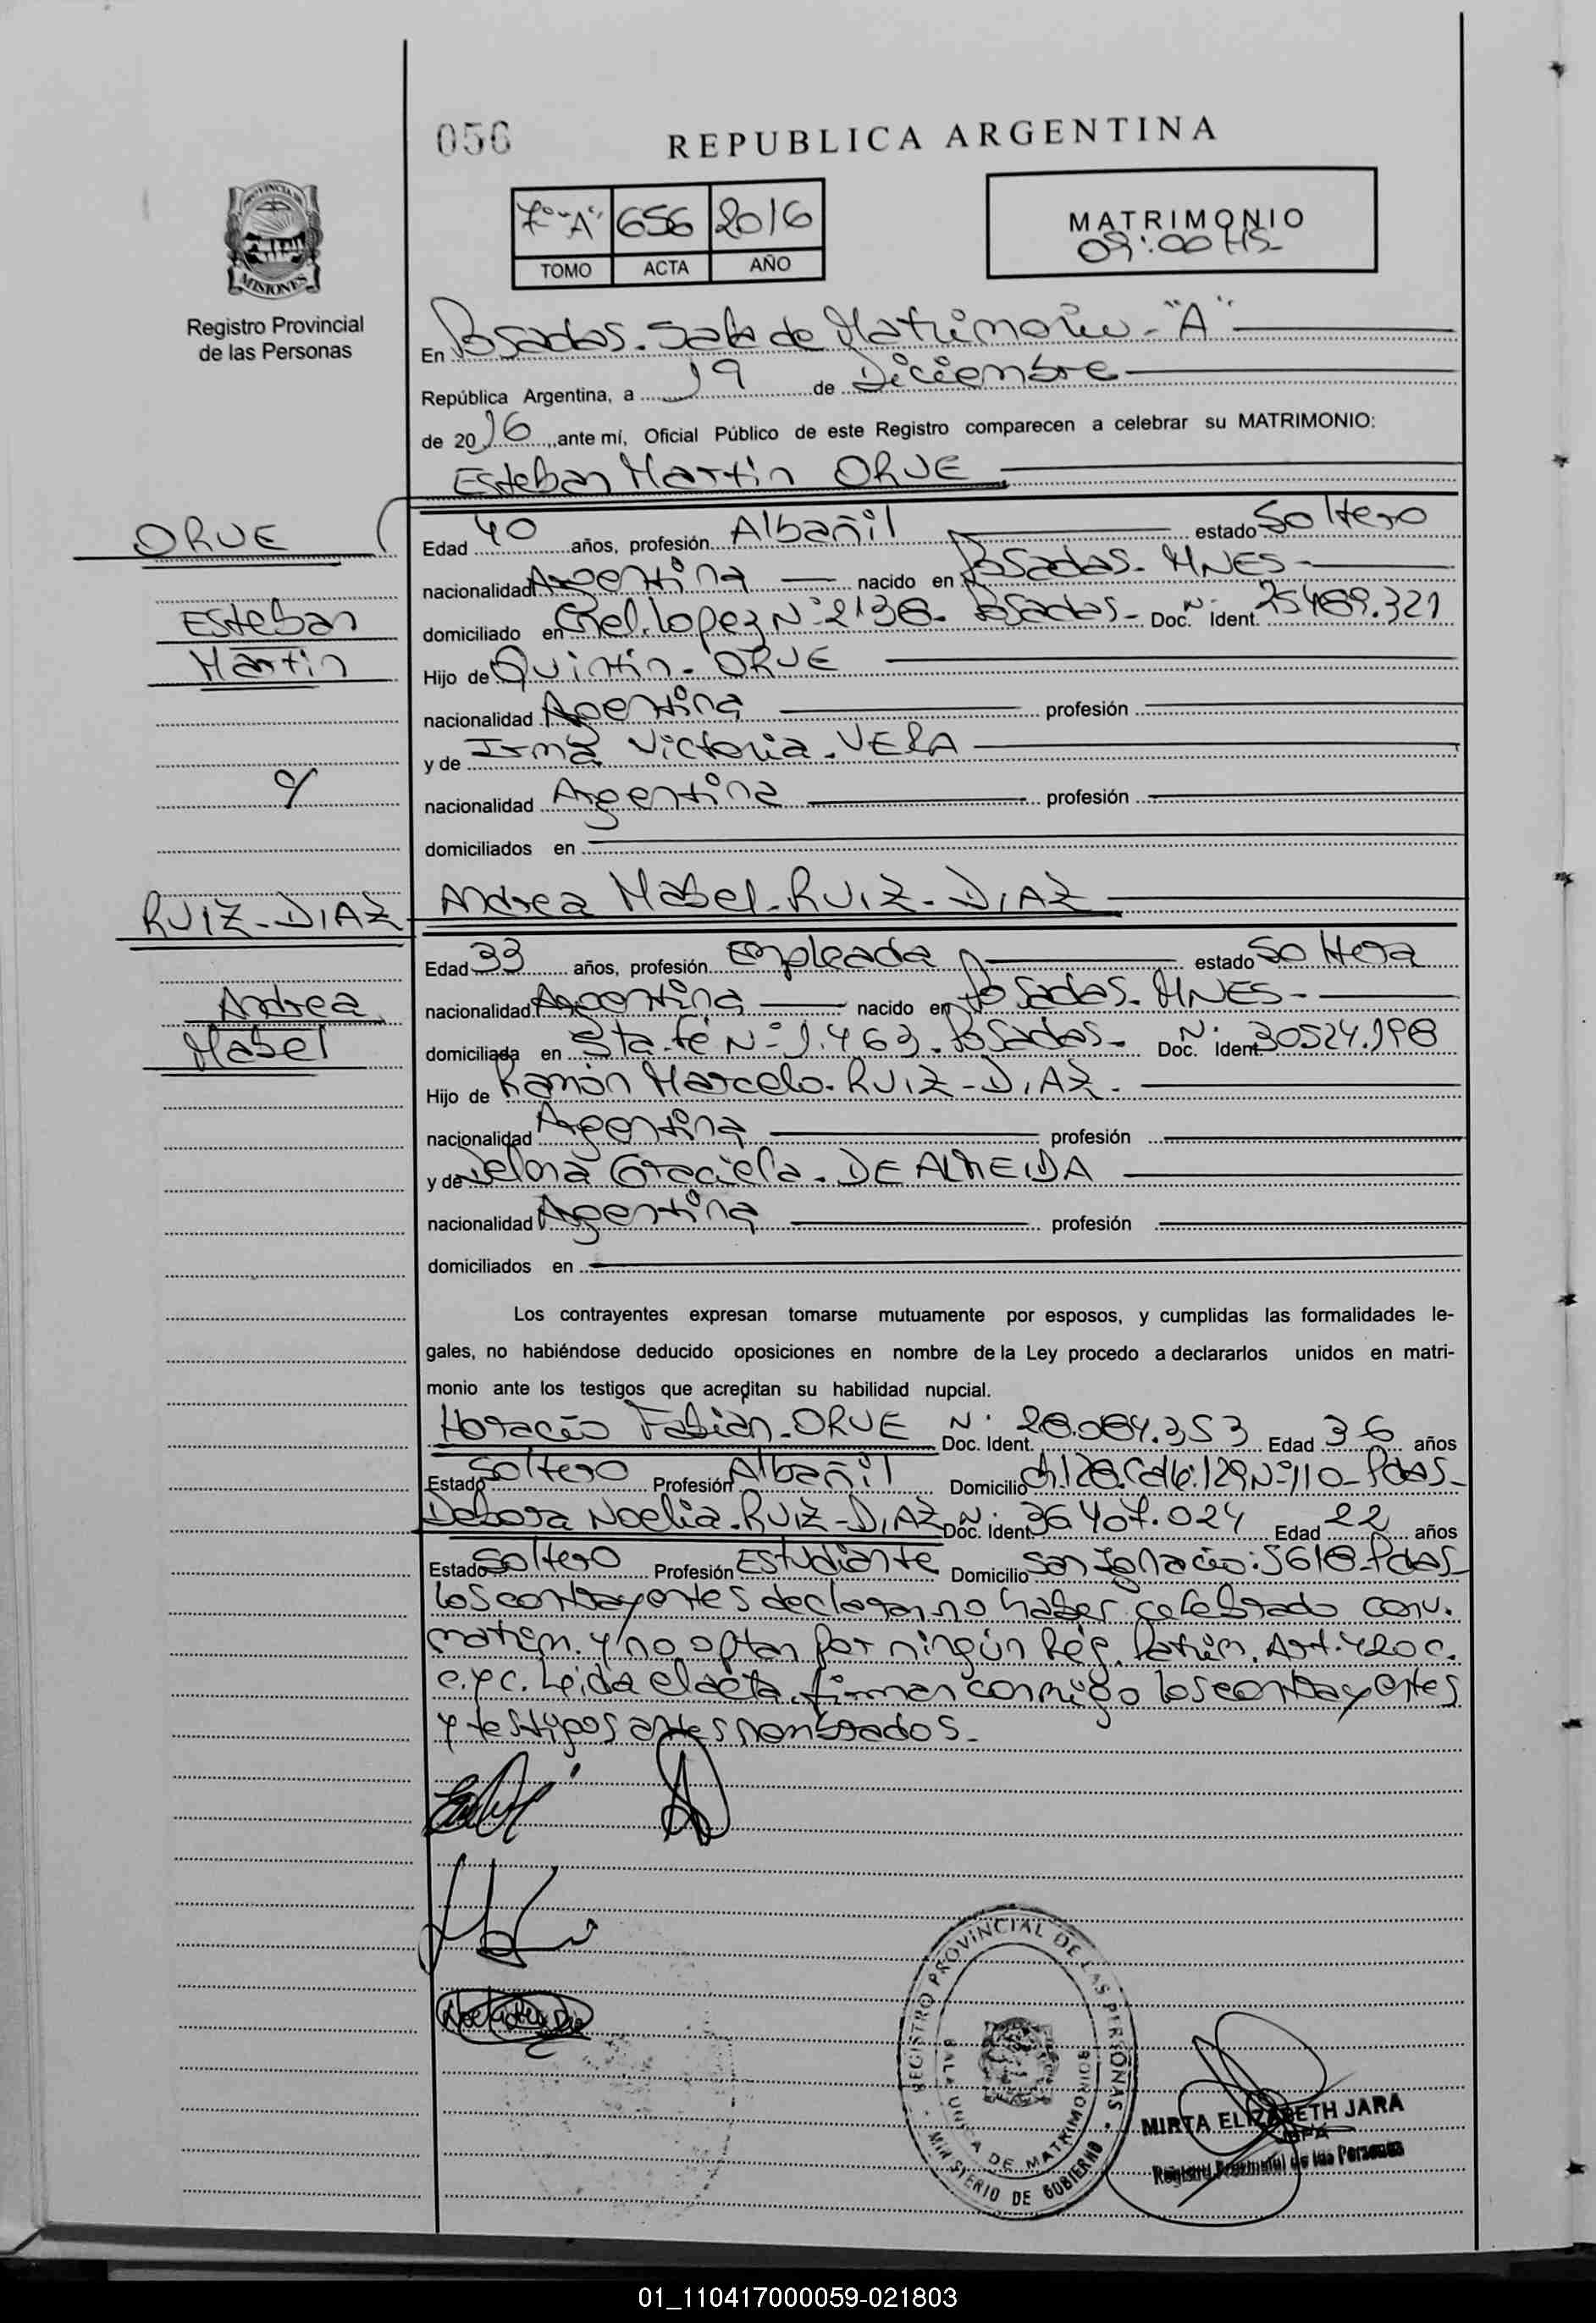 056
REPUBLICA ARGENTINA
PROVINCIA DE
MISIONES
Registro Provincial
de las Personas
7º "A" 656 2016
TOMO ACTA AÑO
MATRIMONIO
09:00 HS-
En Posadas. Sala de Matrimonio - "A"
República Argentina, a 19 de Diciembre
de 2016, ante mí, Oficial Público de este Registro comparecen a celebrar su MATRIMONIO:
Esteban Martín ORUE
ORUE
Esteban
Martín
Edad 40 años, profesión Albañil estado Soltero
nacionalidad Argentina nacido en Posadas. MNES-
domiciliado en Cnel. Lopez Nº 2138. Posadas- Doc. Nº Ident. 25489.321
Hijo de Quintín. ORUE
nacionalidad Argentina profesión
y de Irma Victoria. VERA
nacionalidad Argentina profesión
domiciliados en
c/
RUIZ-DIAZ
Andrea
Mabel
Andrea Mabel-RUIZ-DIAZ
Edad 33 años, profesión Empleada estado Soltera
nacionalidad Argentina nacido en Posadas. MNES-
domiciliada en Sta. fé Nº 1.463. Posadas- Doc. Nº Ident 30524.198
Hijo de Ramón Marcelo. RUIZ-DIAZ.
nacionalidad Argentina profesión
y de Delma Graciela. DE ALMEIDA
nacionalidad Argentina profesión
domiciliados en
Los contrayentes expresan tomarse mutuamente por esposos, y cumplidas las formalidades le-
gales, no habiéndose deducido oposiciones en nombre de la Ley procedo a declararlos unidos en matri-
monio ante los testigos que acreditan su habilidad nupcial.
Horacio Fabián-ORUE Nº Doc. Ident. 28.084.353 Edad 36 años
Estado Soltero Profesión Albañil Domicilio Ch.128. Cal4:129 Nº 110-Pdas-
Debora Noelia. RUIZ-DIAZ Nº Doc. Ident 36407.024 Edad 22 años
Estado Soltero Profesión Estudiante Domicilio San Ignacio: 5618-Pdas-
los contrayentes declaran no haber celebrado conv.
matrim. y no optan por ningún Rég. Patrim. Art. 420 c.
c. y c. Leida el acta, firman conmigo los contrayentes
y testigos antes nombrados-
REGISTRO PROVINCIAL DE LAS PERSONAS
MINISTERIO DE GOBIERNO
SALA UNICA DE MATRIMONIOS
MIRTA ELIZABETH JARA
Registro Provincial de las Personas
01_110417000059-021803